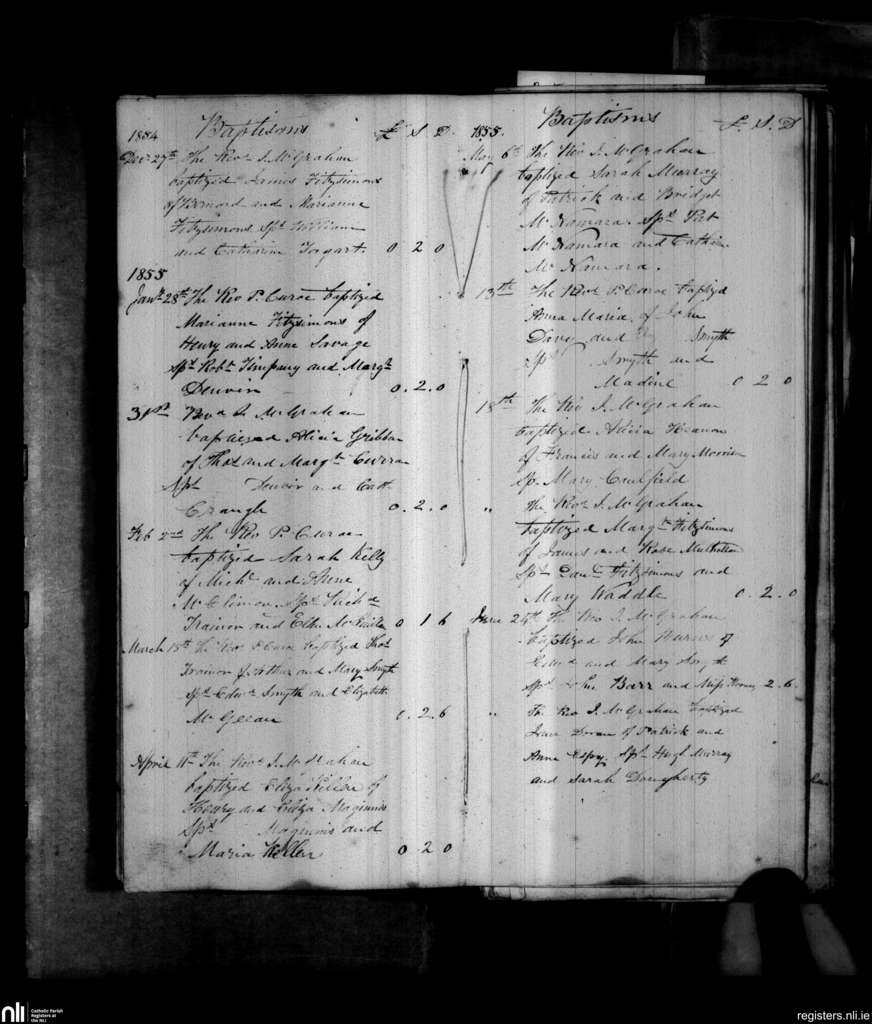 1854 Baptisms £ S D.
Decr 27th The Revd J. McGrahan
baptized James Fitzsimons
of Bernard and Marianne
Fitzsimons Sps William
and Catharine Tagart. 0 2 0
1855
Jany 28th The Rev P. Curoe baptized
Marianne Fitzsimons of
Henry and Anne Savage
Sps Robt Timpany and Margt
Denvir 0.2.0
31st Revd J. McGrahan
baptized Alicia Gribben
of Thos and Margt Curran
Sps Denvir and Cath
Crangle 0.2.0
Feb 2nd The Rev P. Curoe
baptized Sarah Kelly
of Michl and Anne
Sps Richd
Trainor and 0 1 6
March 18th The Rev P Curoe baptized Thos
Trainor of Arthur and Mary Smyth
Sps Edwd Smyth and Elizabeth
McGeean 0.2.6
April 11th The Revd J. McGrahan
baptized Eliza Killen of
Henry and Eliza Maginnis
Sps Maginnis and
Maria Killen 0 2 0
1855. Baptisms £. S. D
May 6th The Rev J. McGrahan
baptized Sarah Murray
of Patrick and Bridget
McNamara. Sps Pat
McNamara and Cathin
McNamara.
13th The Revd P. Curoe baptizd
Anna Maria of John
Davy and Smyth
Sps Smyth and
Madine 0 2 0
18th The Rev J. McGrahan
baptized Alicia Heanon
of Francis and Mary Morrison
Sp. Mary Caulfield
" The Revd J. McGrahan
baptized Margt Fitzsimons
of James and Rose Mulhollan
Sps Fitzsimons and
Mary Waddle 0.2.0
June 24th The Rev J. McGrahan
baptized John Burns of
Edwd and Mary Smyth
Sps John Barr and Miss 2.6.
" The Rev J. McGrahan baptized
Jane Doran of Patrick and
Anne Espy. Sps Hugh Murray
and Sarah Daugherty
nli Catholic Parish
Registers at
the NLI
registers.nli.ie